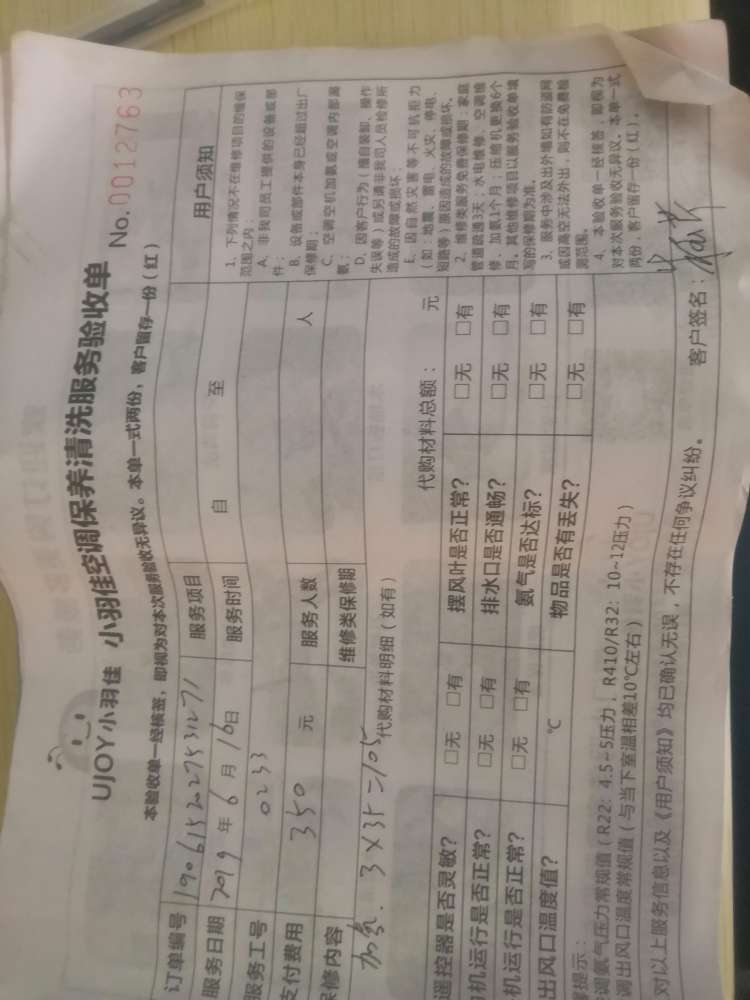 UJOY小羽佳 小羽佳空调保养清洗服务验收单 No.0012763
本验收单一经核签，即视为对本次服务验收无异议。本单一式两份，客户留存一份（红）
订单编号 1906152027531271 服务项目
服务日期 2019年6月16日 服务时间 自 至
服务工号 0233
支付费用 350 元 服务人数 人
保修内容 维修类保修期
加氨. 3×35=105
代购材料明细（如有） 代购材料总额： 元
遥控器是否灵敏？ □无 □有 摆风叶是否正常？ □无 □有
机运行是否正常？ □无 □有 排水口是否通畅？ □无 □有
机运行是否正常？ □无 □有 氨气是否达标？ □无 □有
出风口温度值？ ℃ 物品是否有丢失？ □无 □有
提示：
调氨气压力常规值（R22：4.5~5压力，R410/R32：10~12压力）
调出风口温度常规值（与当下室温相差10℃左右）
对以上服务信息以及《用户须知》均已确认无误，不存在任何争议纠纷。 客户签名：
用户须知
1、下列情况不在维修项目的维保
范围之内：
A、非我司员工提供的设备或部
件；
B、设备或部件本身已经超过出厂
保修期；
C、空调空机加氨或空调内部漏
氨；
D、因客户行为（擅自装卸、操作
失误等）或另请非我司人员检修所
造成的故障或损坏；
E、因自然灾害等不可抗拒力
（如：地震、雷电、火灾、停电、
短路等）原因造成的故障或损坏。
2、维修类服务免费保修期：家庭
管道疏通3天；水电维修、空调检
修、加氨1个月；压缩机更换6个
月。其他维修项目以服务验收单填
写的保修期为准。
3、服务中涉及出外墙如有防盗网
或因高空无法外出，则不在免费检
测范围。
4、本验收单一经核签，即视为
对本次服务验收无异议。本单一式
两份，客户留存一份（红）。